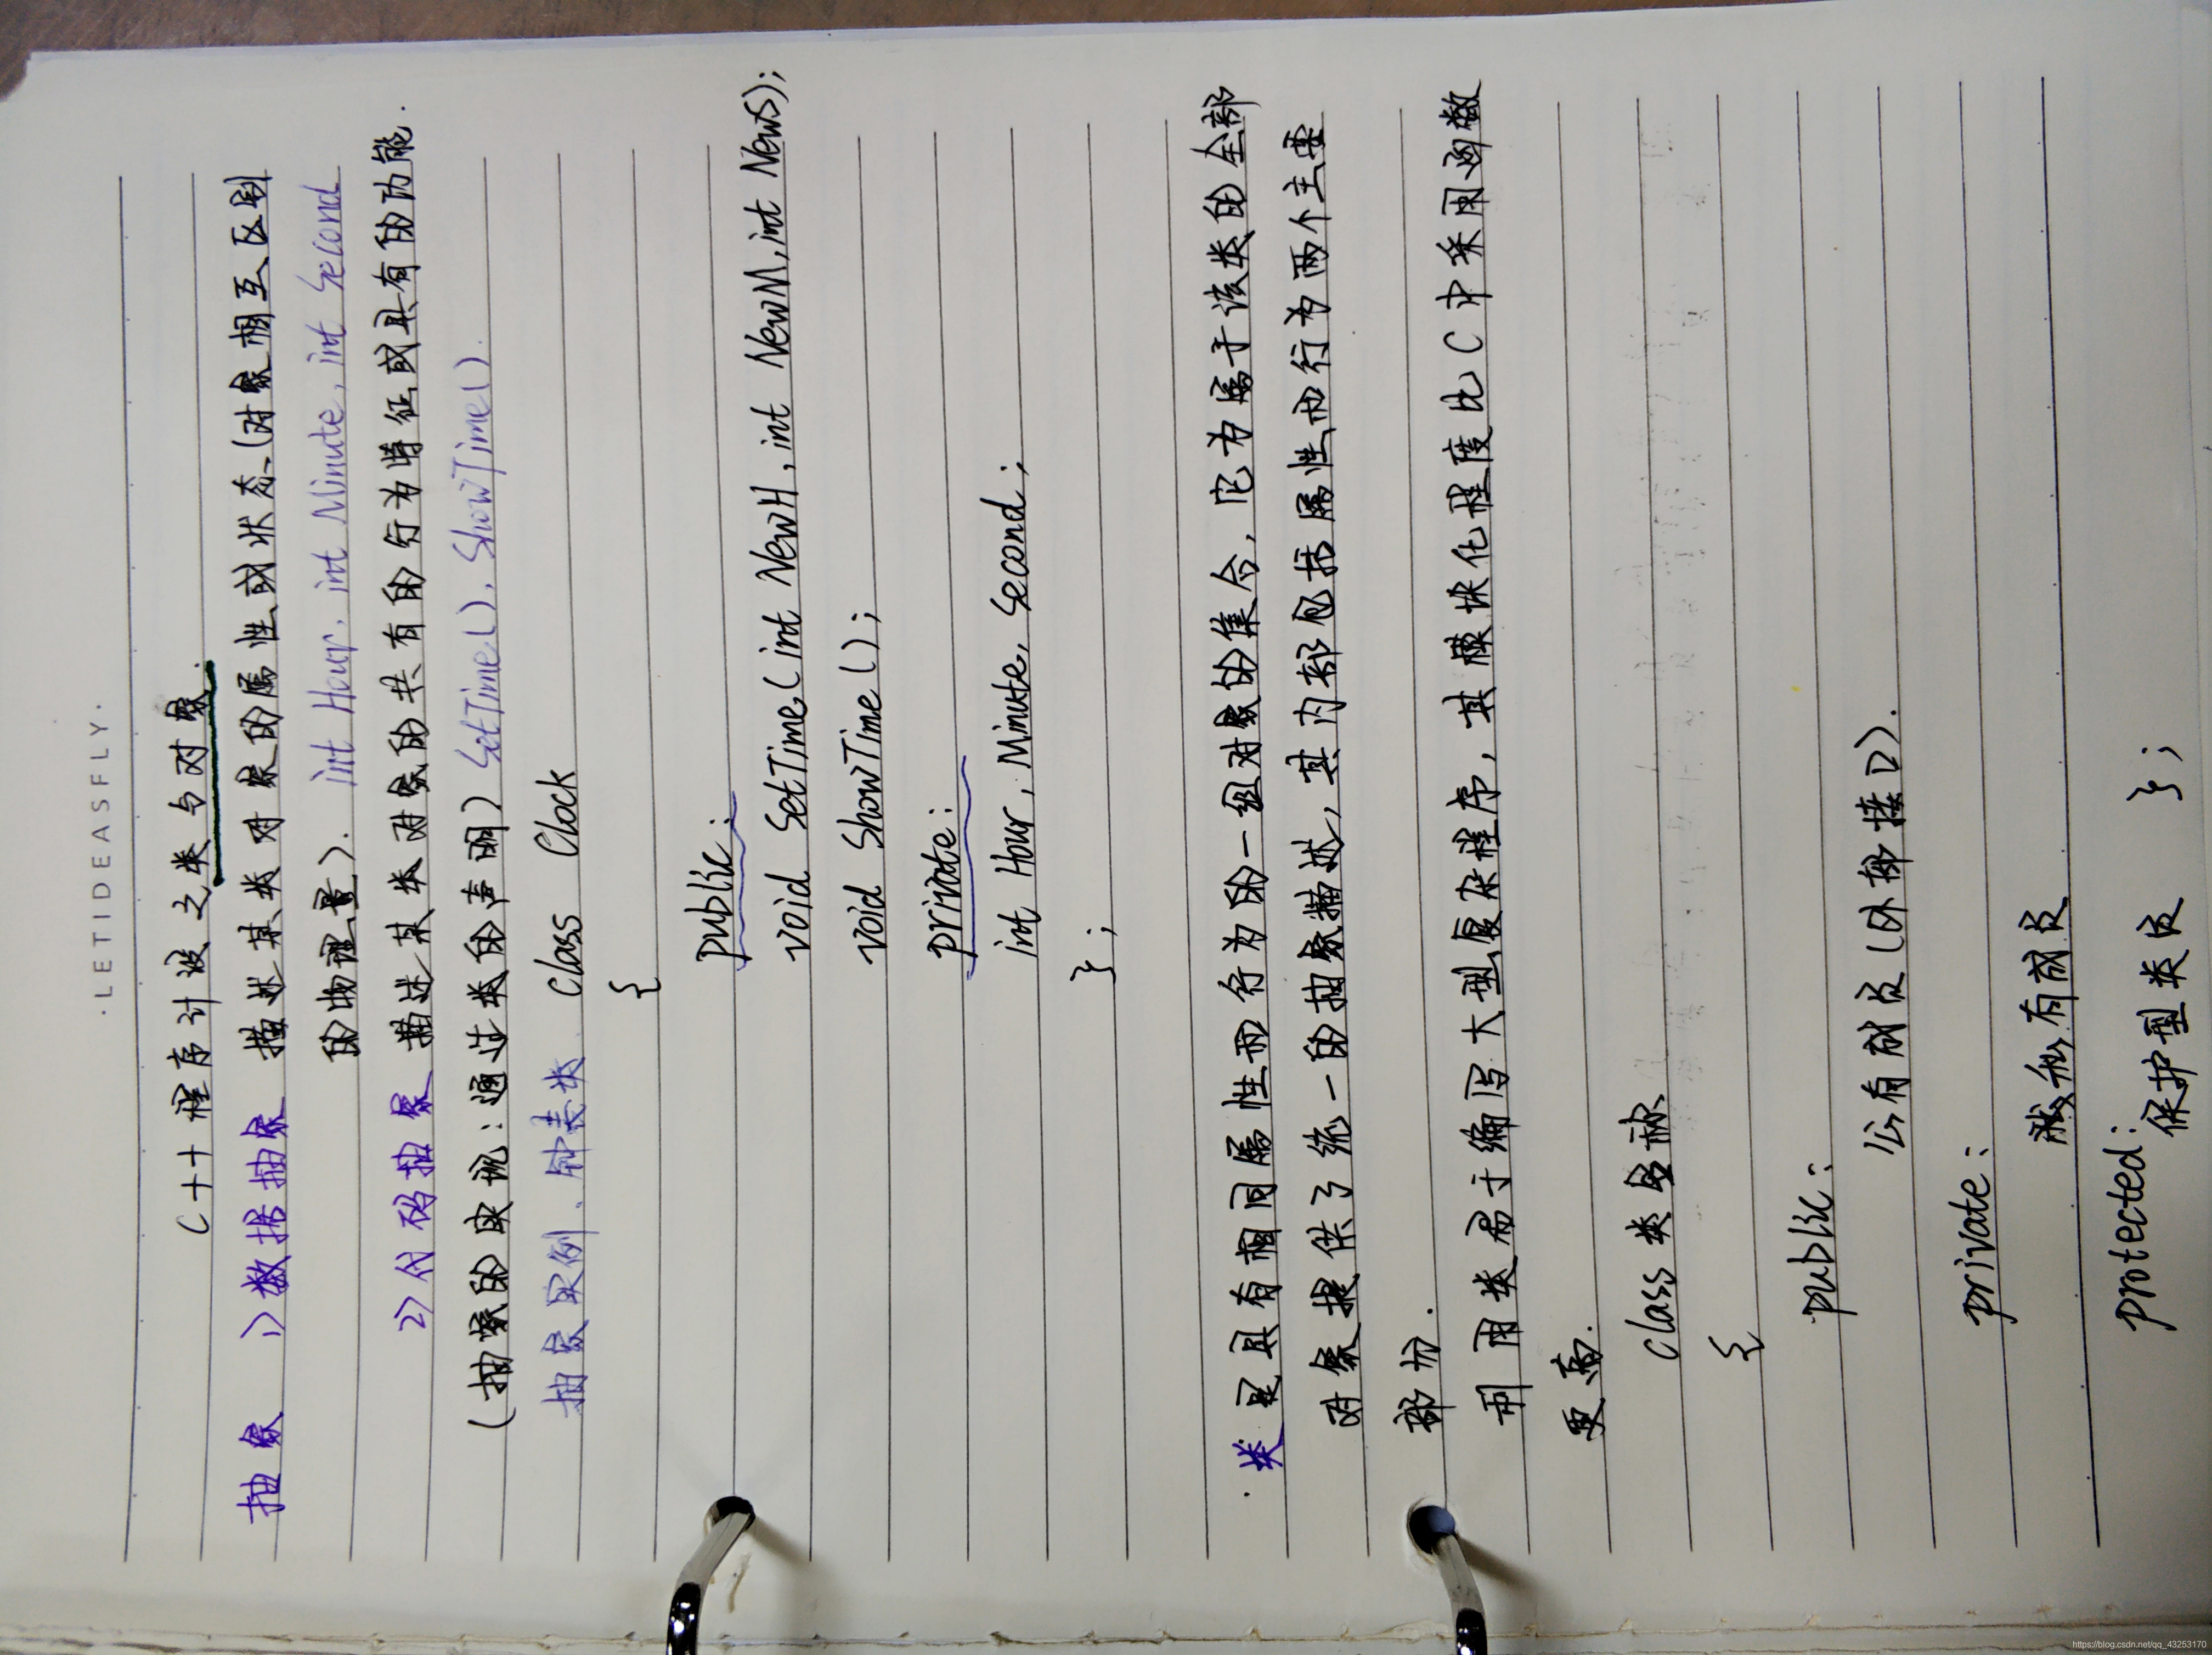 ·LETIDEASFLY·
C++程序计设之类与对象.
抽象 1>数据抽象 描述某类对象的属性或状态(对象相互区别
的物理量). int Hour, int Minute, int Second
2>代码抽象 描述某类对象的共有的行为特征或具有的功能.
(抽象的实现:通过类的声明) SetTime(), ShowTime().
抽象实例、钟表类. class Clock
{
public:
void SetTime(int NewH, int NewM, int NewS);
void ShowTime();
private:
int Hour, Minute, Second;
};
·类是具有相同属性而行为的一组对象的集合, 它为属于该类的全部
对象提供了统一的抽象描述, 其内部包括属性而行为两个主要
部分.
利用类易于编写大型复杂程序, 其模块化程度比C中采用函数
更高.
class 类名称
{
public:
公有成员(外部接口).
private:
私有成员
protected:
保护型类员 };
https://blog.csdn.net/qq_43253170